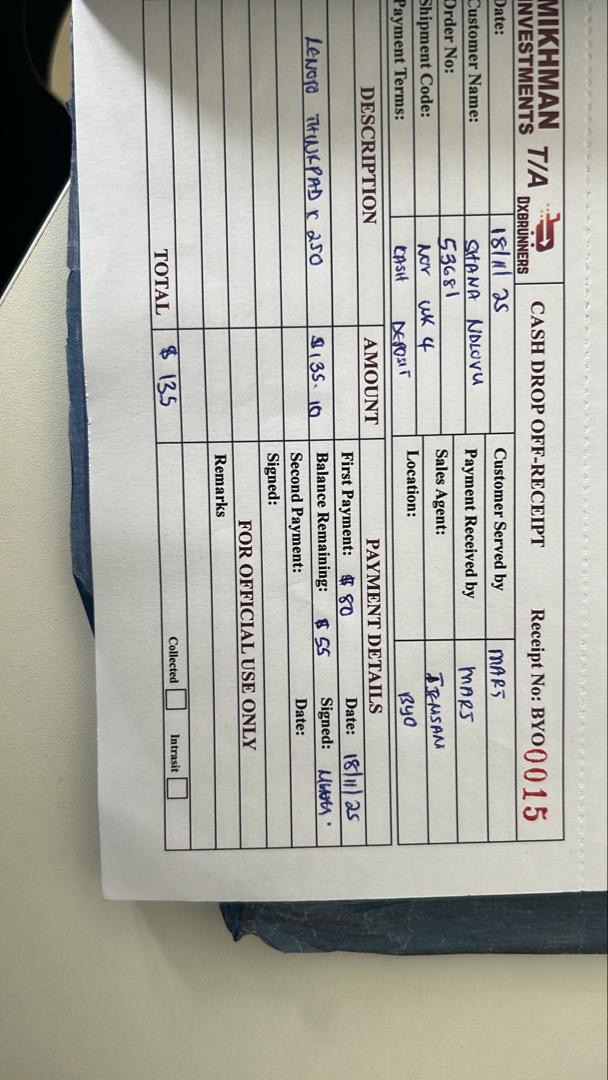 MIKHMAN T/A DXBRUNNERS
INVESTMENTS
CASH DROP OFF-RECEIPT Receipt No: BYO0015
Date: 18/11/25 Customer Served by MARS
Customer Name: SHANA NDLOVU Payment Received by MARS
Order No: 53681 Sales Agent:
Shipment Code: NOV WK 4 Location: BYO
Payment Terms: CASH DEPOSIT
DESCRIPTION AMOUNT PAYMENT DETAILS
First Payment: $ 80 Date: 18/11/25
LENOVO THINKPAD X 250 $135.10 Balance Remaining: $ 55 Signed:
Second Payment: Date:
Signed:
FOR OFFICIAL USE ONLY
Remarks
TOTAL $ 135 Collected Intrasit